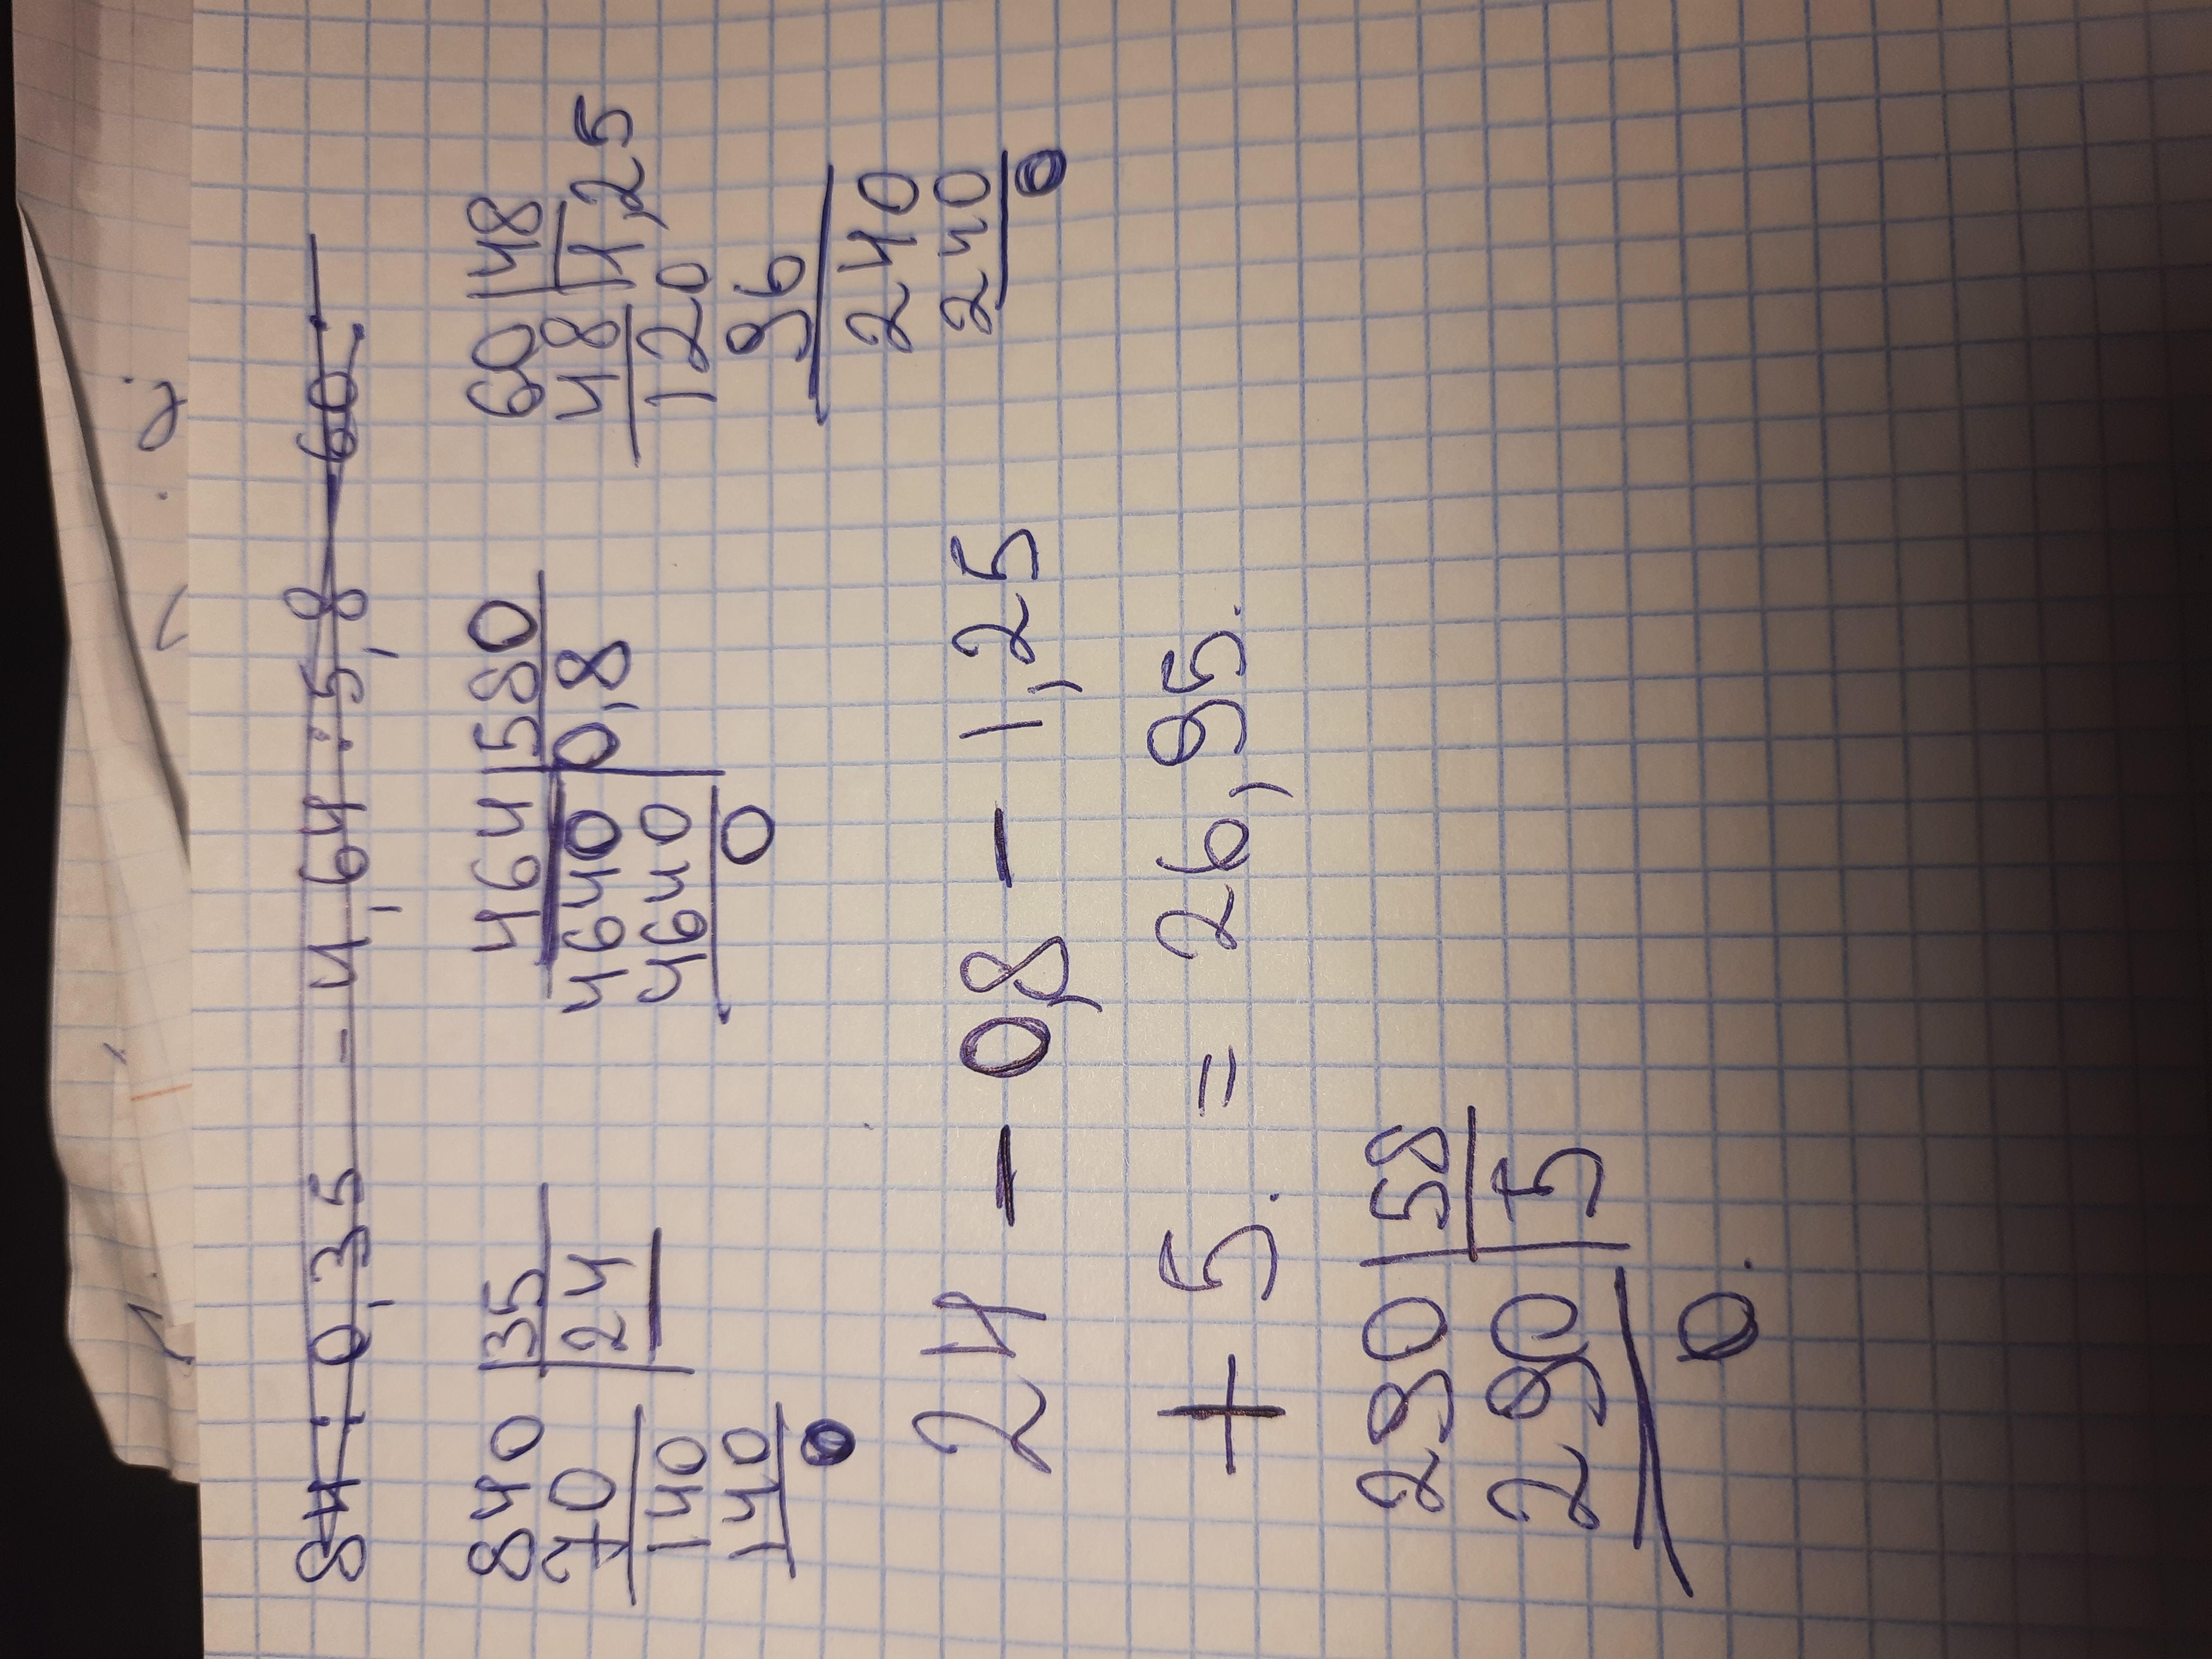 84 : 0,35 - 4,64 : 5,8 - 60 :
840 | 35
70 | 24
140
140
0
464 | 580
4640 | 0,8
4640
0
60 | 48
48 | 1,25
120
96
240
240
0
24 - 0,8 - 1,25
+ 5. = 26,95.
290 | 58
290 | 5
0.